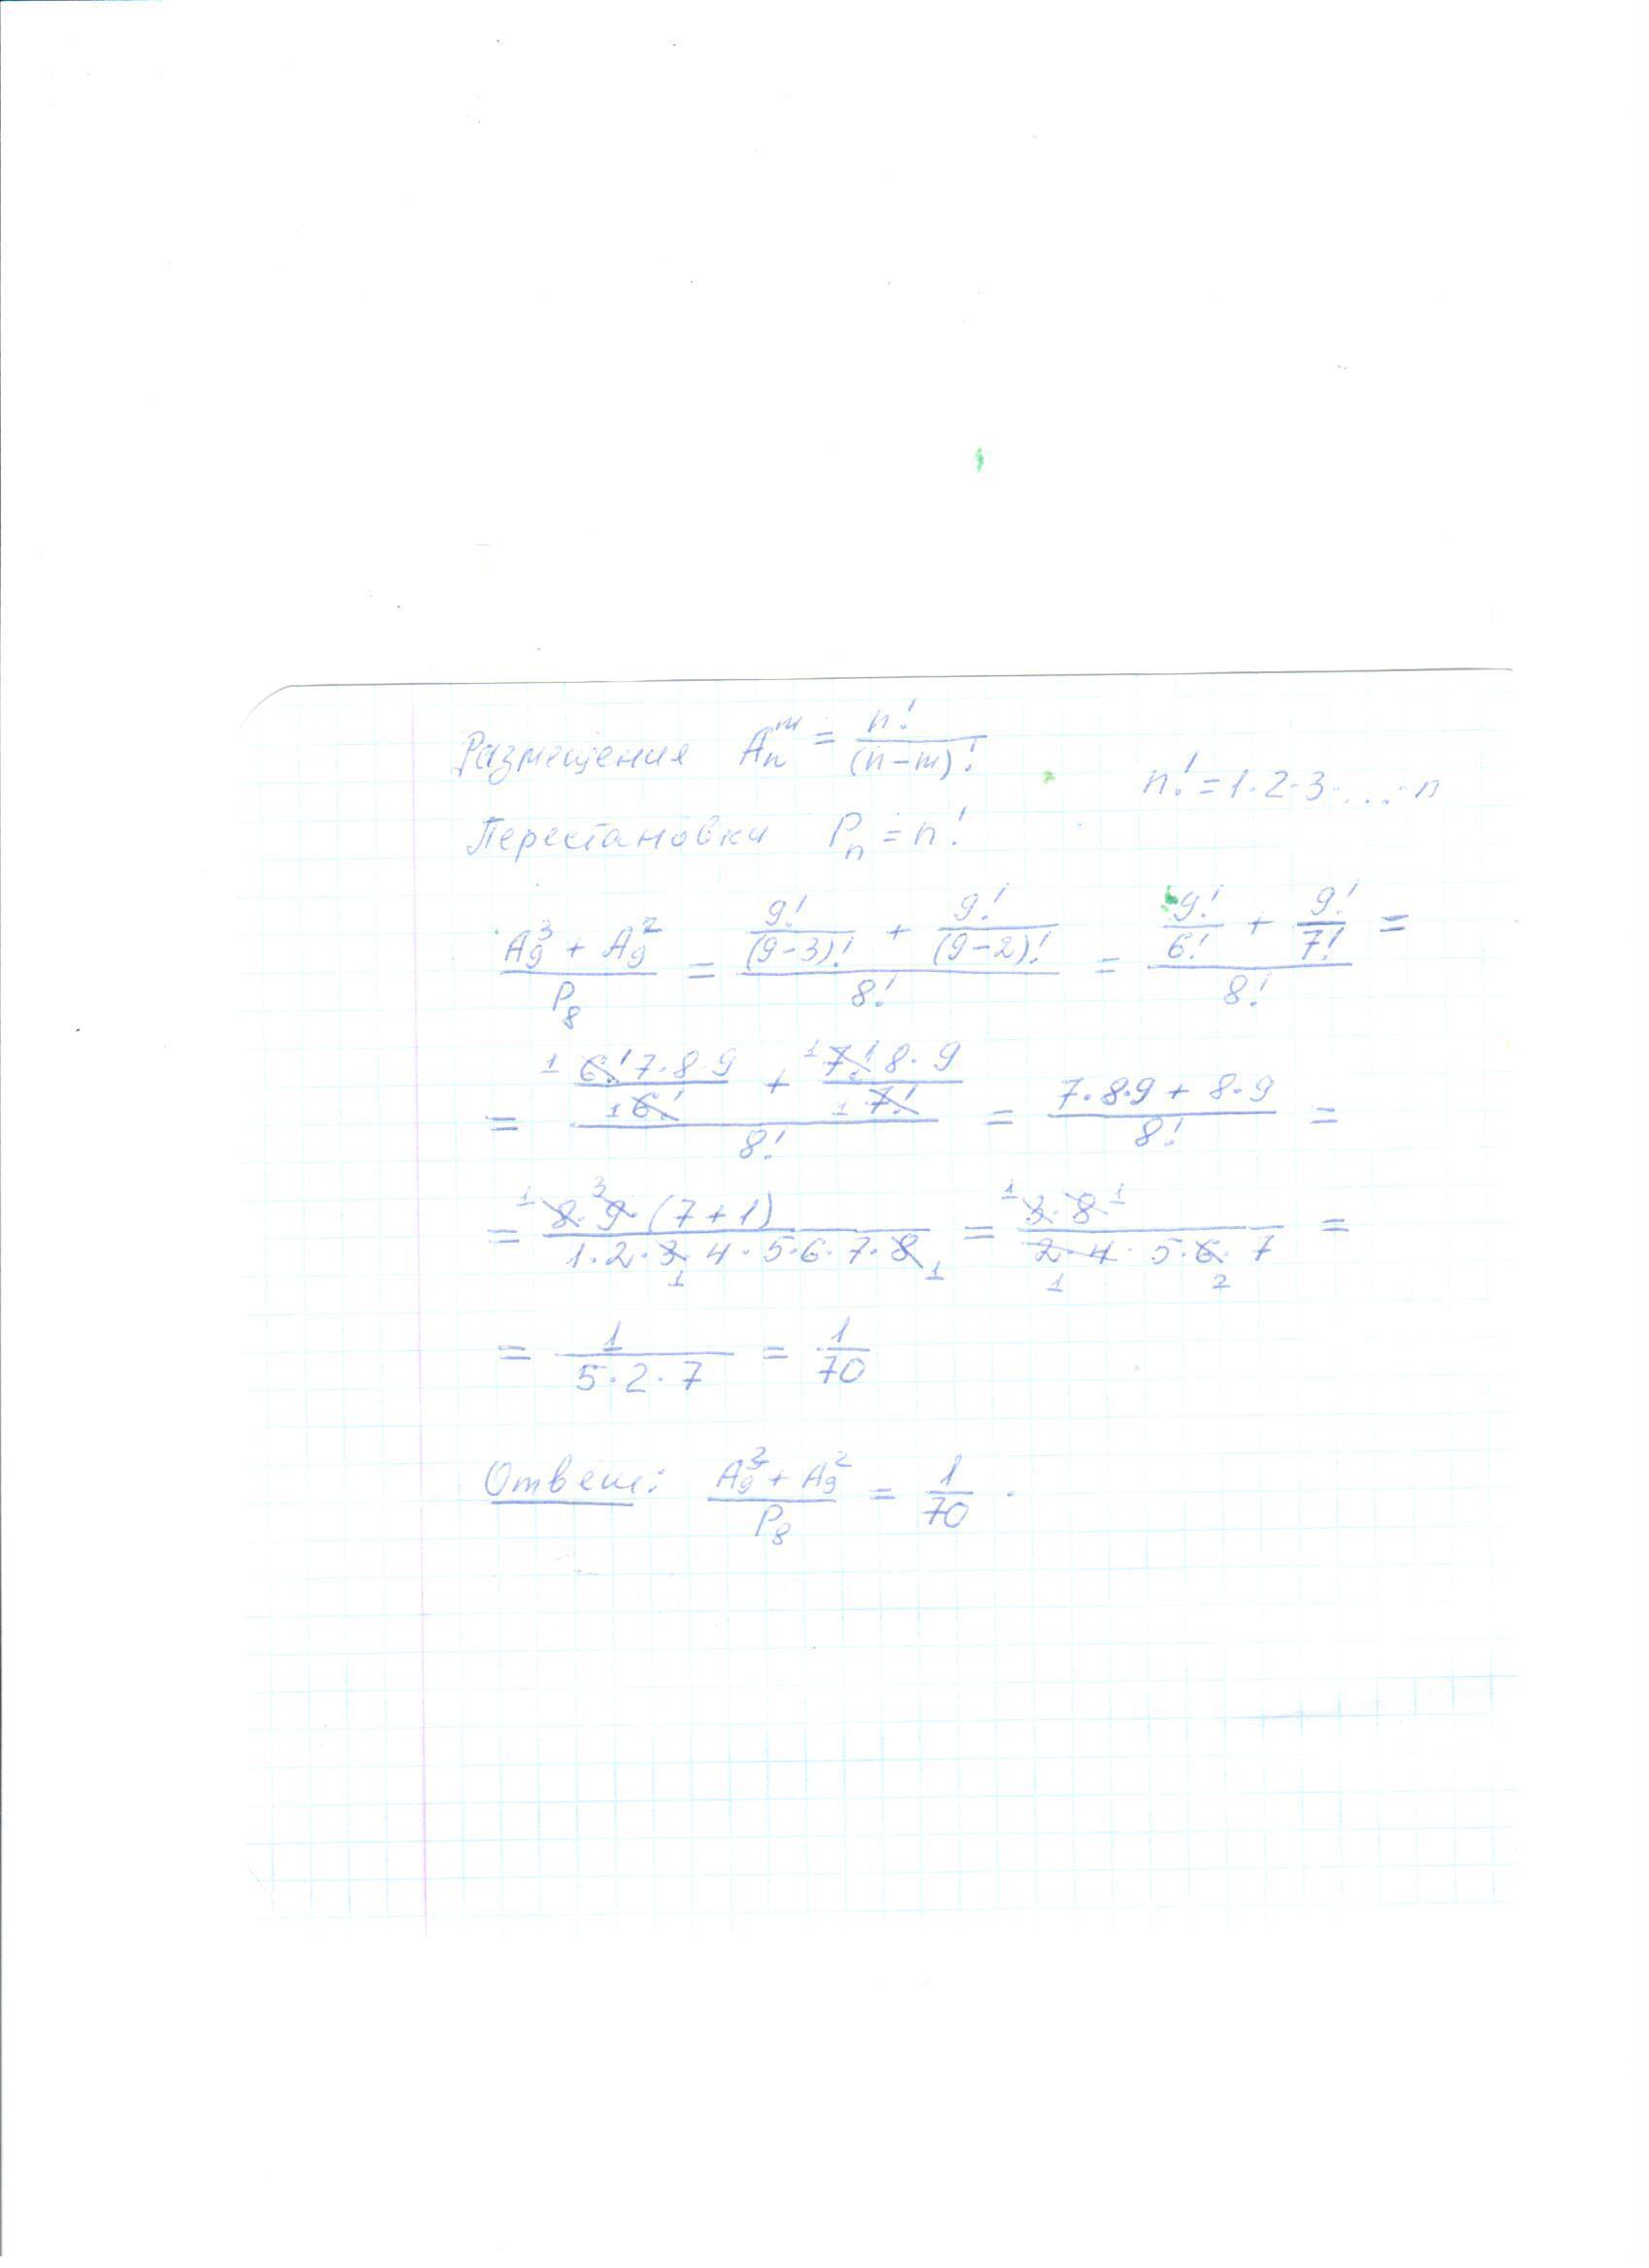 Размещения A_n^m = n!/(n-m)!
n! = 1·2·3·...·n
Перестановки P_n = n!
(A_9^3 + A_9^2)/P_8 = (9!/(9-3)! + 9!/(9-2)!)/8! = (9!/6! + 9!/7!)/8! =
= (6!·7·8·9/6! + 7!·8·9/7!)/8! = (7·8·9 + 8·9)/8! =
= 8·9·(7+1)/(1·2·3·4·5·6·7·8) = 3·8/(2·4·5·6·7) =
= 1/(5·2·7) = 1/70
Ответ: (A_9^3 + A_9^2)/P_8 = 1/70.